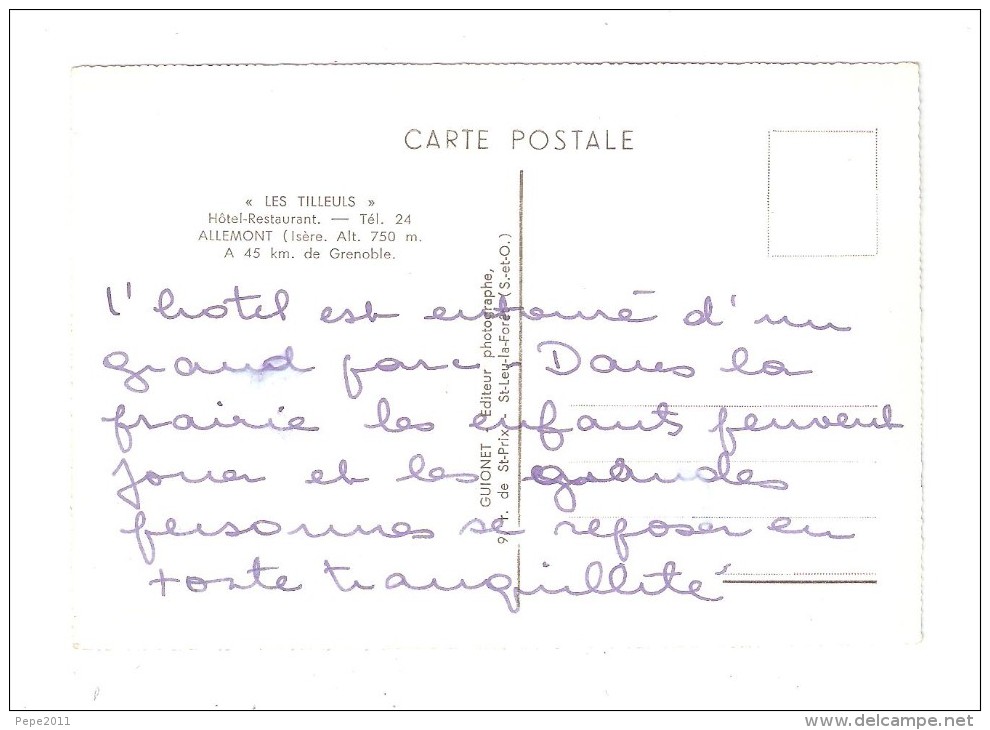 CARTE POSTALE
« LES TILLEULS »
Hôtel-Restaurant. — Tél. 24
ALLEMONT (Isère. Alt. 750 m.
A 45 km. de Grenoble.
GUIONET Editeur photographe,
de St-Prix - St-Leu-la-Forêt (S.-et-O.)
L'hotel est entouré d'un
grand parc - Dans la
prairie les enfants peuvent
jouer et les grandes
personnes se reposer en
toute tranquillité
Pepe2011
www.delcampe.net